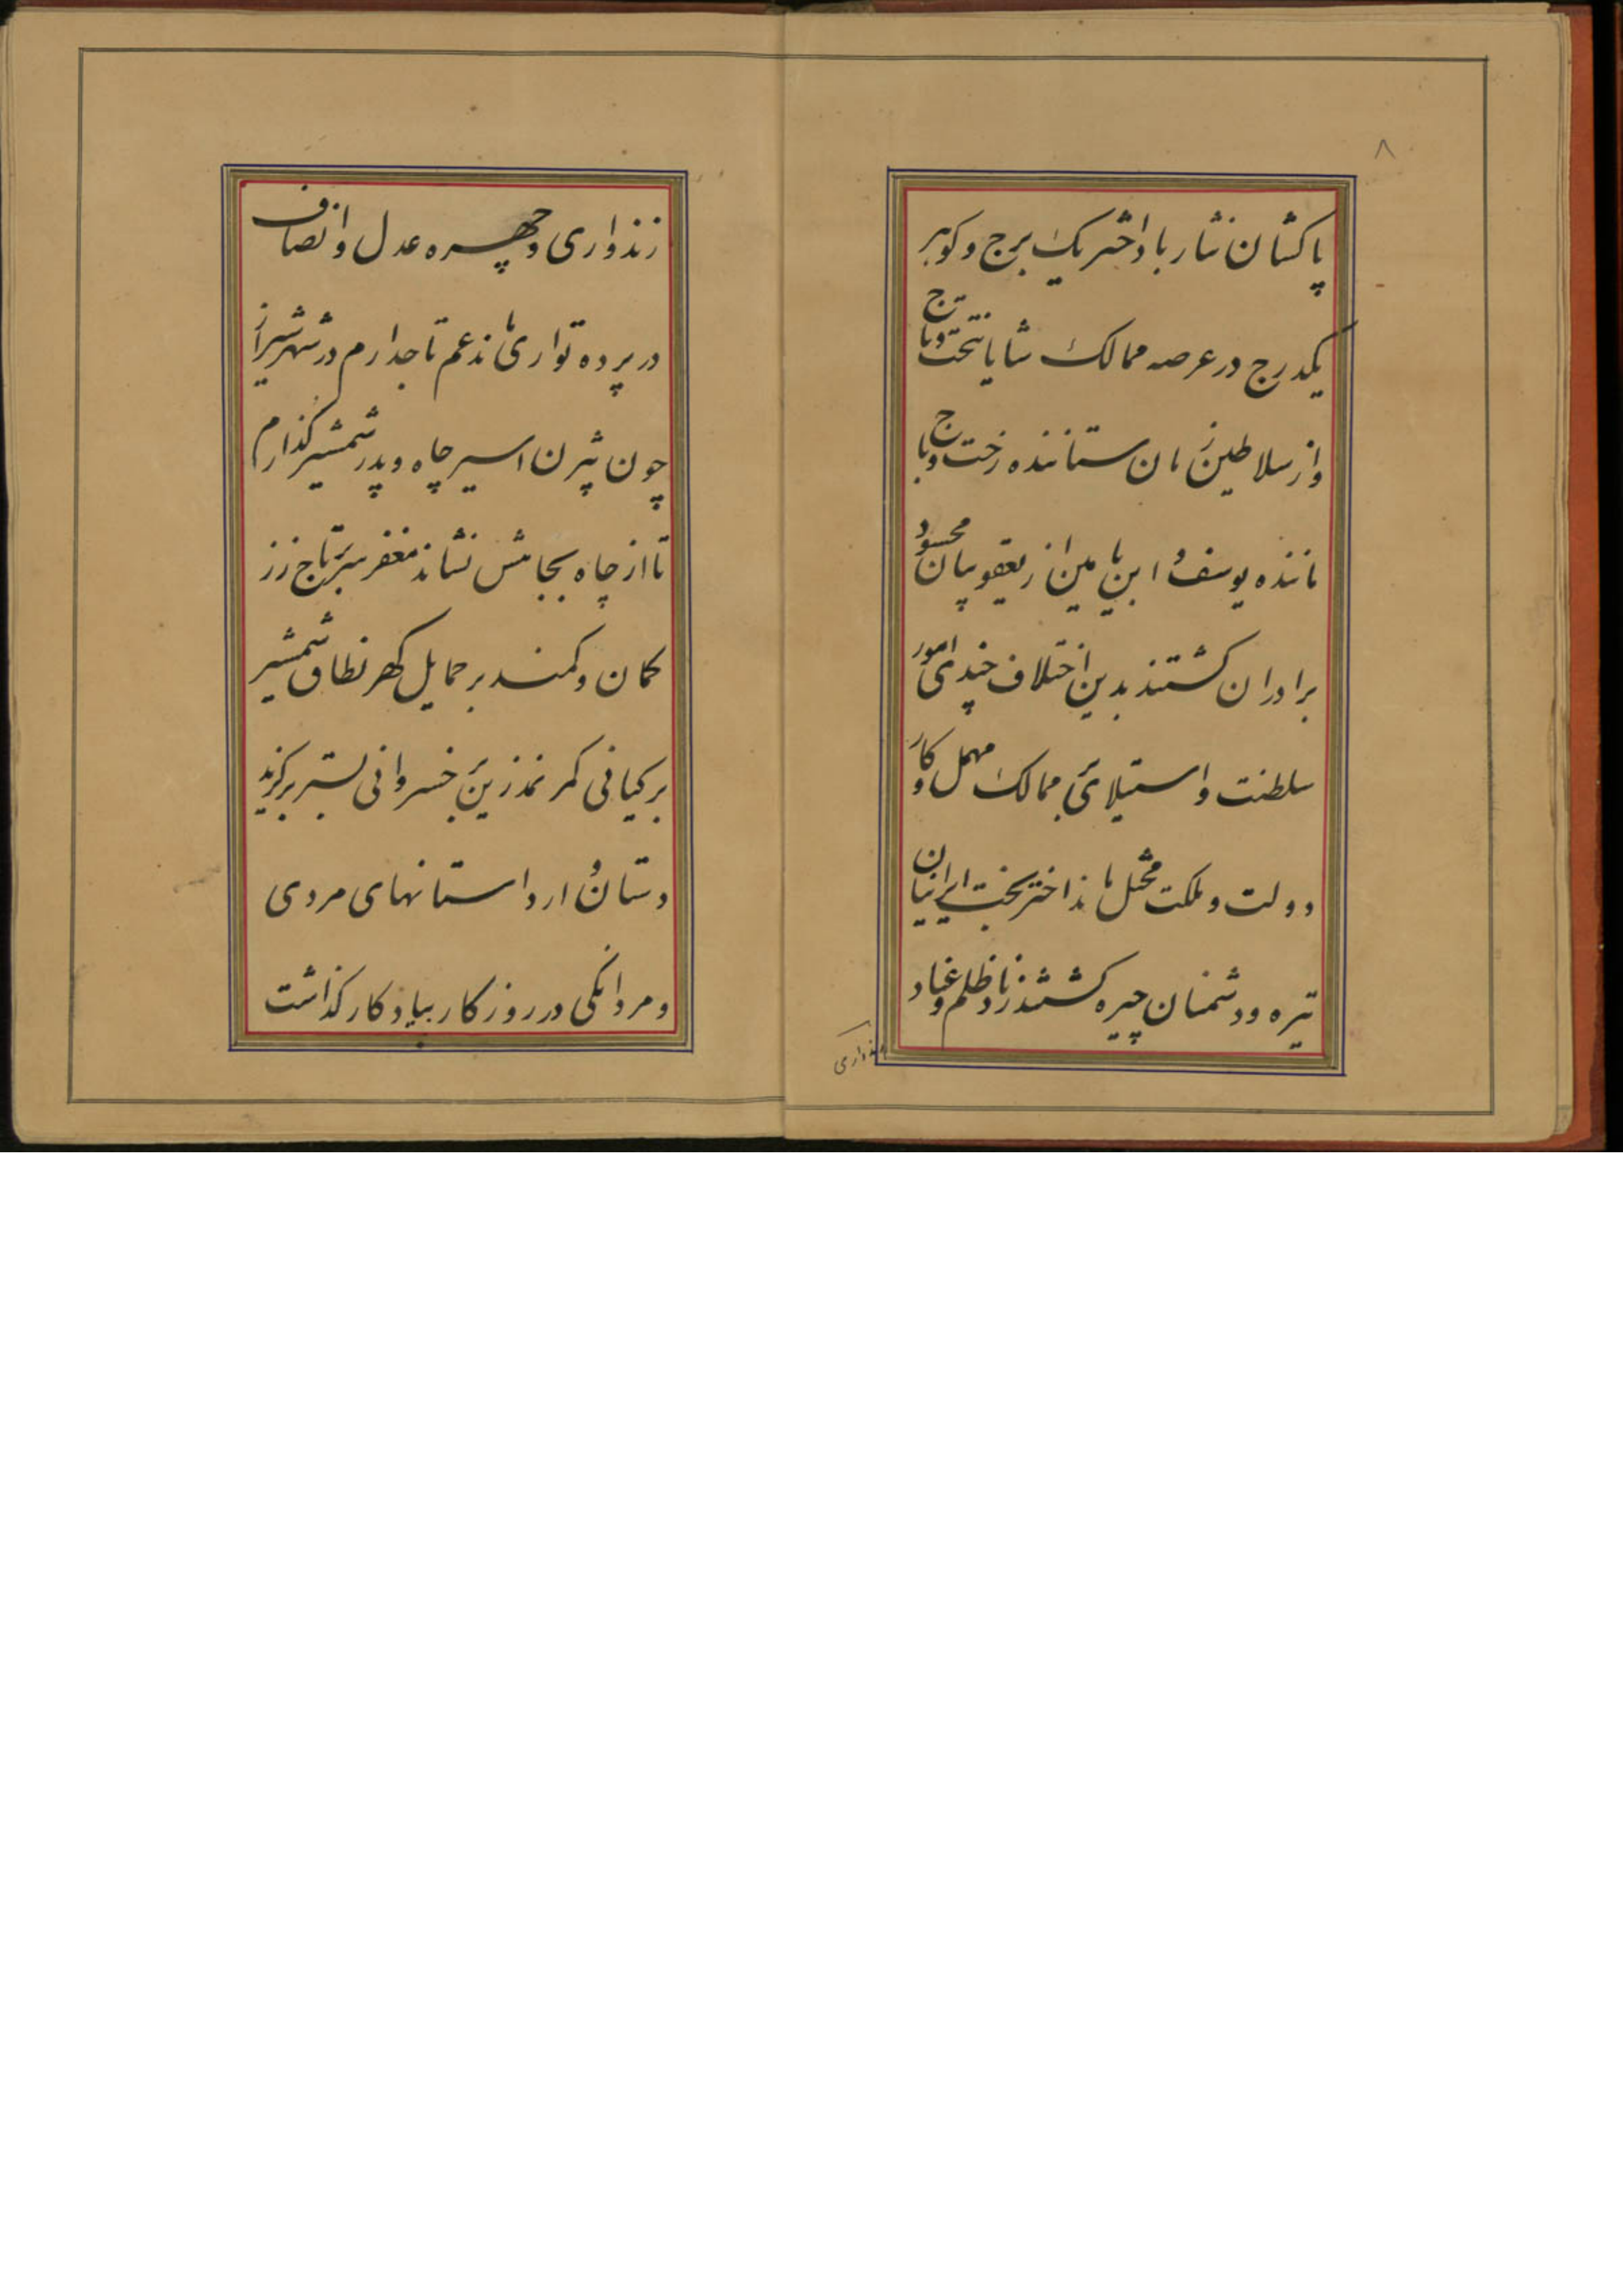 ۸
پاکشان نثار باد اختر یک برج و کوهر
یکدرج در عرصه ممالک شایان تخت و تاج
و از سلاطین زمان ستاننده رخت و باج
ماننده یوسف و ابن یامین از یعقوبیان محسود
برادران کشتند بدین اختلاف چندی امور
سلطنت و استیلای بر ممالک مهمل و کار
دولت و ملکت مختل ماند اختر بخت ایرانیان
تیره و دشمنان چیره کشتند زناد ظلم و عناد
زندواری
زندواری و چهره عدل و انصاف
در پرده تواری ماند عم تاجدارم در شهر شیراز
چون بیژن اسیر چاه و پدر شمشیر کذارم
تا از چاه بجاهش نشاند مغفر بر تاج زر
کمان و کمند بر حمایل کهر نطاق شمشیر
بر کیانی کمر نمد زین بر خسروانی بستر برکزید
دستان وار داستانهای مردی
و مردانکی در روزکار بیادکار کذاشت